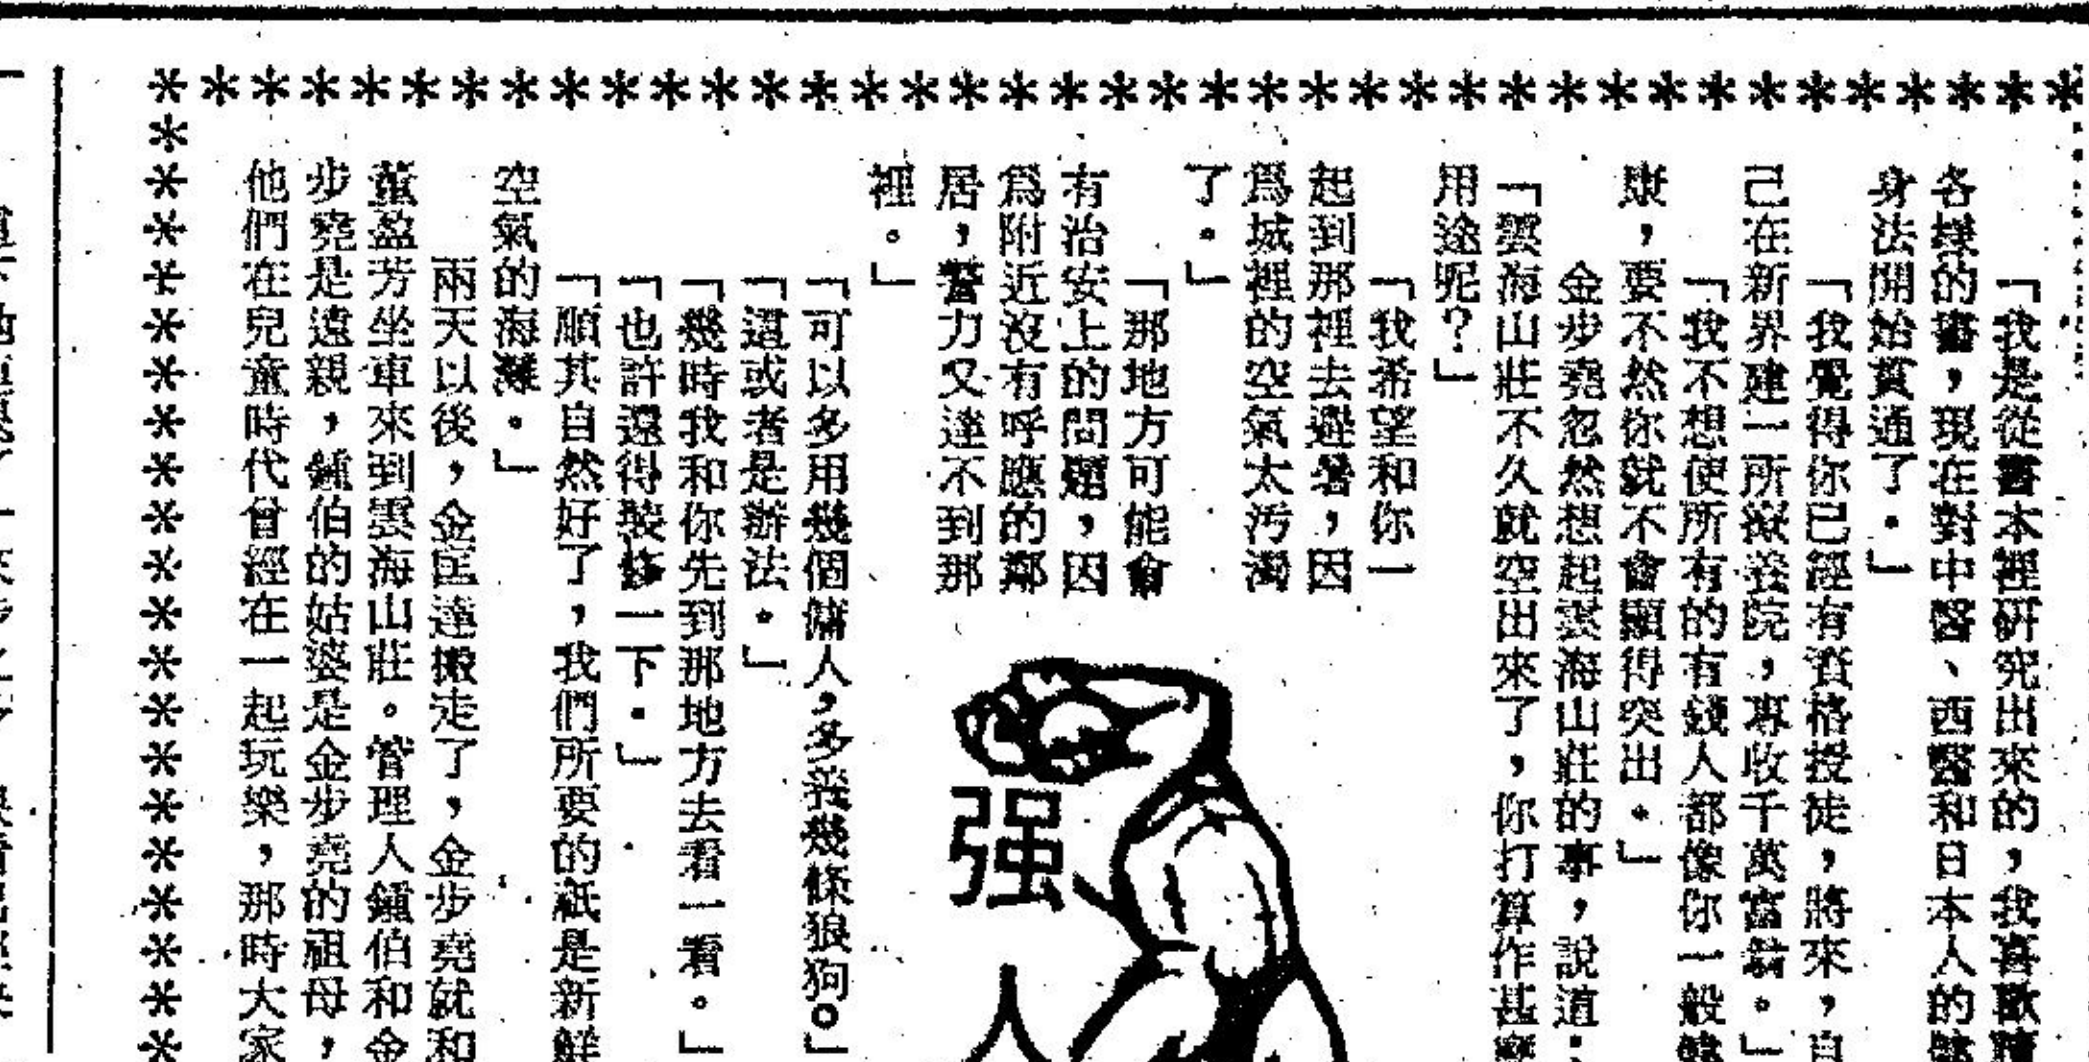 「我是從書本裡研究出來的，我喜歡讀
各樣的書，現在對中醫、西醫和日本人的健
身法開始貫通了。」
「我覺得你已經有資格授徒，將來，自
己在新界建一所療養院，專收千萬富翁。」
「我不想使所有的有錢人都像你一般健
康，要不然你就不會顯得突出。」
金步堯忽然想起雲海山莊的事，說道：
「雲海山莊不久就空出來了，你打算作甚麼
用途呢？」
「我希望和你一
起到那裡去避暑，因
爲城裡的空氣太污濁
了。」
「那地方可能會
有治安上的問題，因
爲附近沒有呼應的鄰
居，警力又達不到那
裡。」
强
人
「可以多用幾個傭人，多養幾條狼狗。」
「這或者是辦法。」
「幾時我和你先到那地方去看一看。」
「也許還得裝修一下。」
「順其自然好了，我們所要的祗是新鮮
空氣的海灘。」
兩天以後，金匡達搬走了，金步堯就和
董盈芳坐車來到雲海山莊。管理人鍾伯和金
步堯是遠親，鍾伯的姑婆是金步堯的祖母，
他們在兒童時代曾經在一起玩樂，那時大家